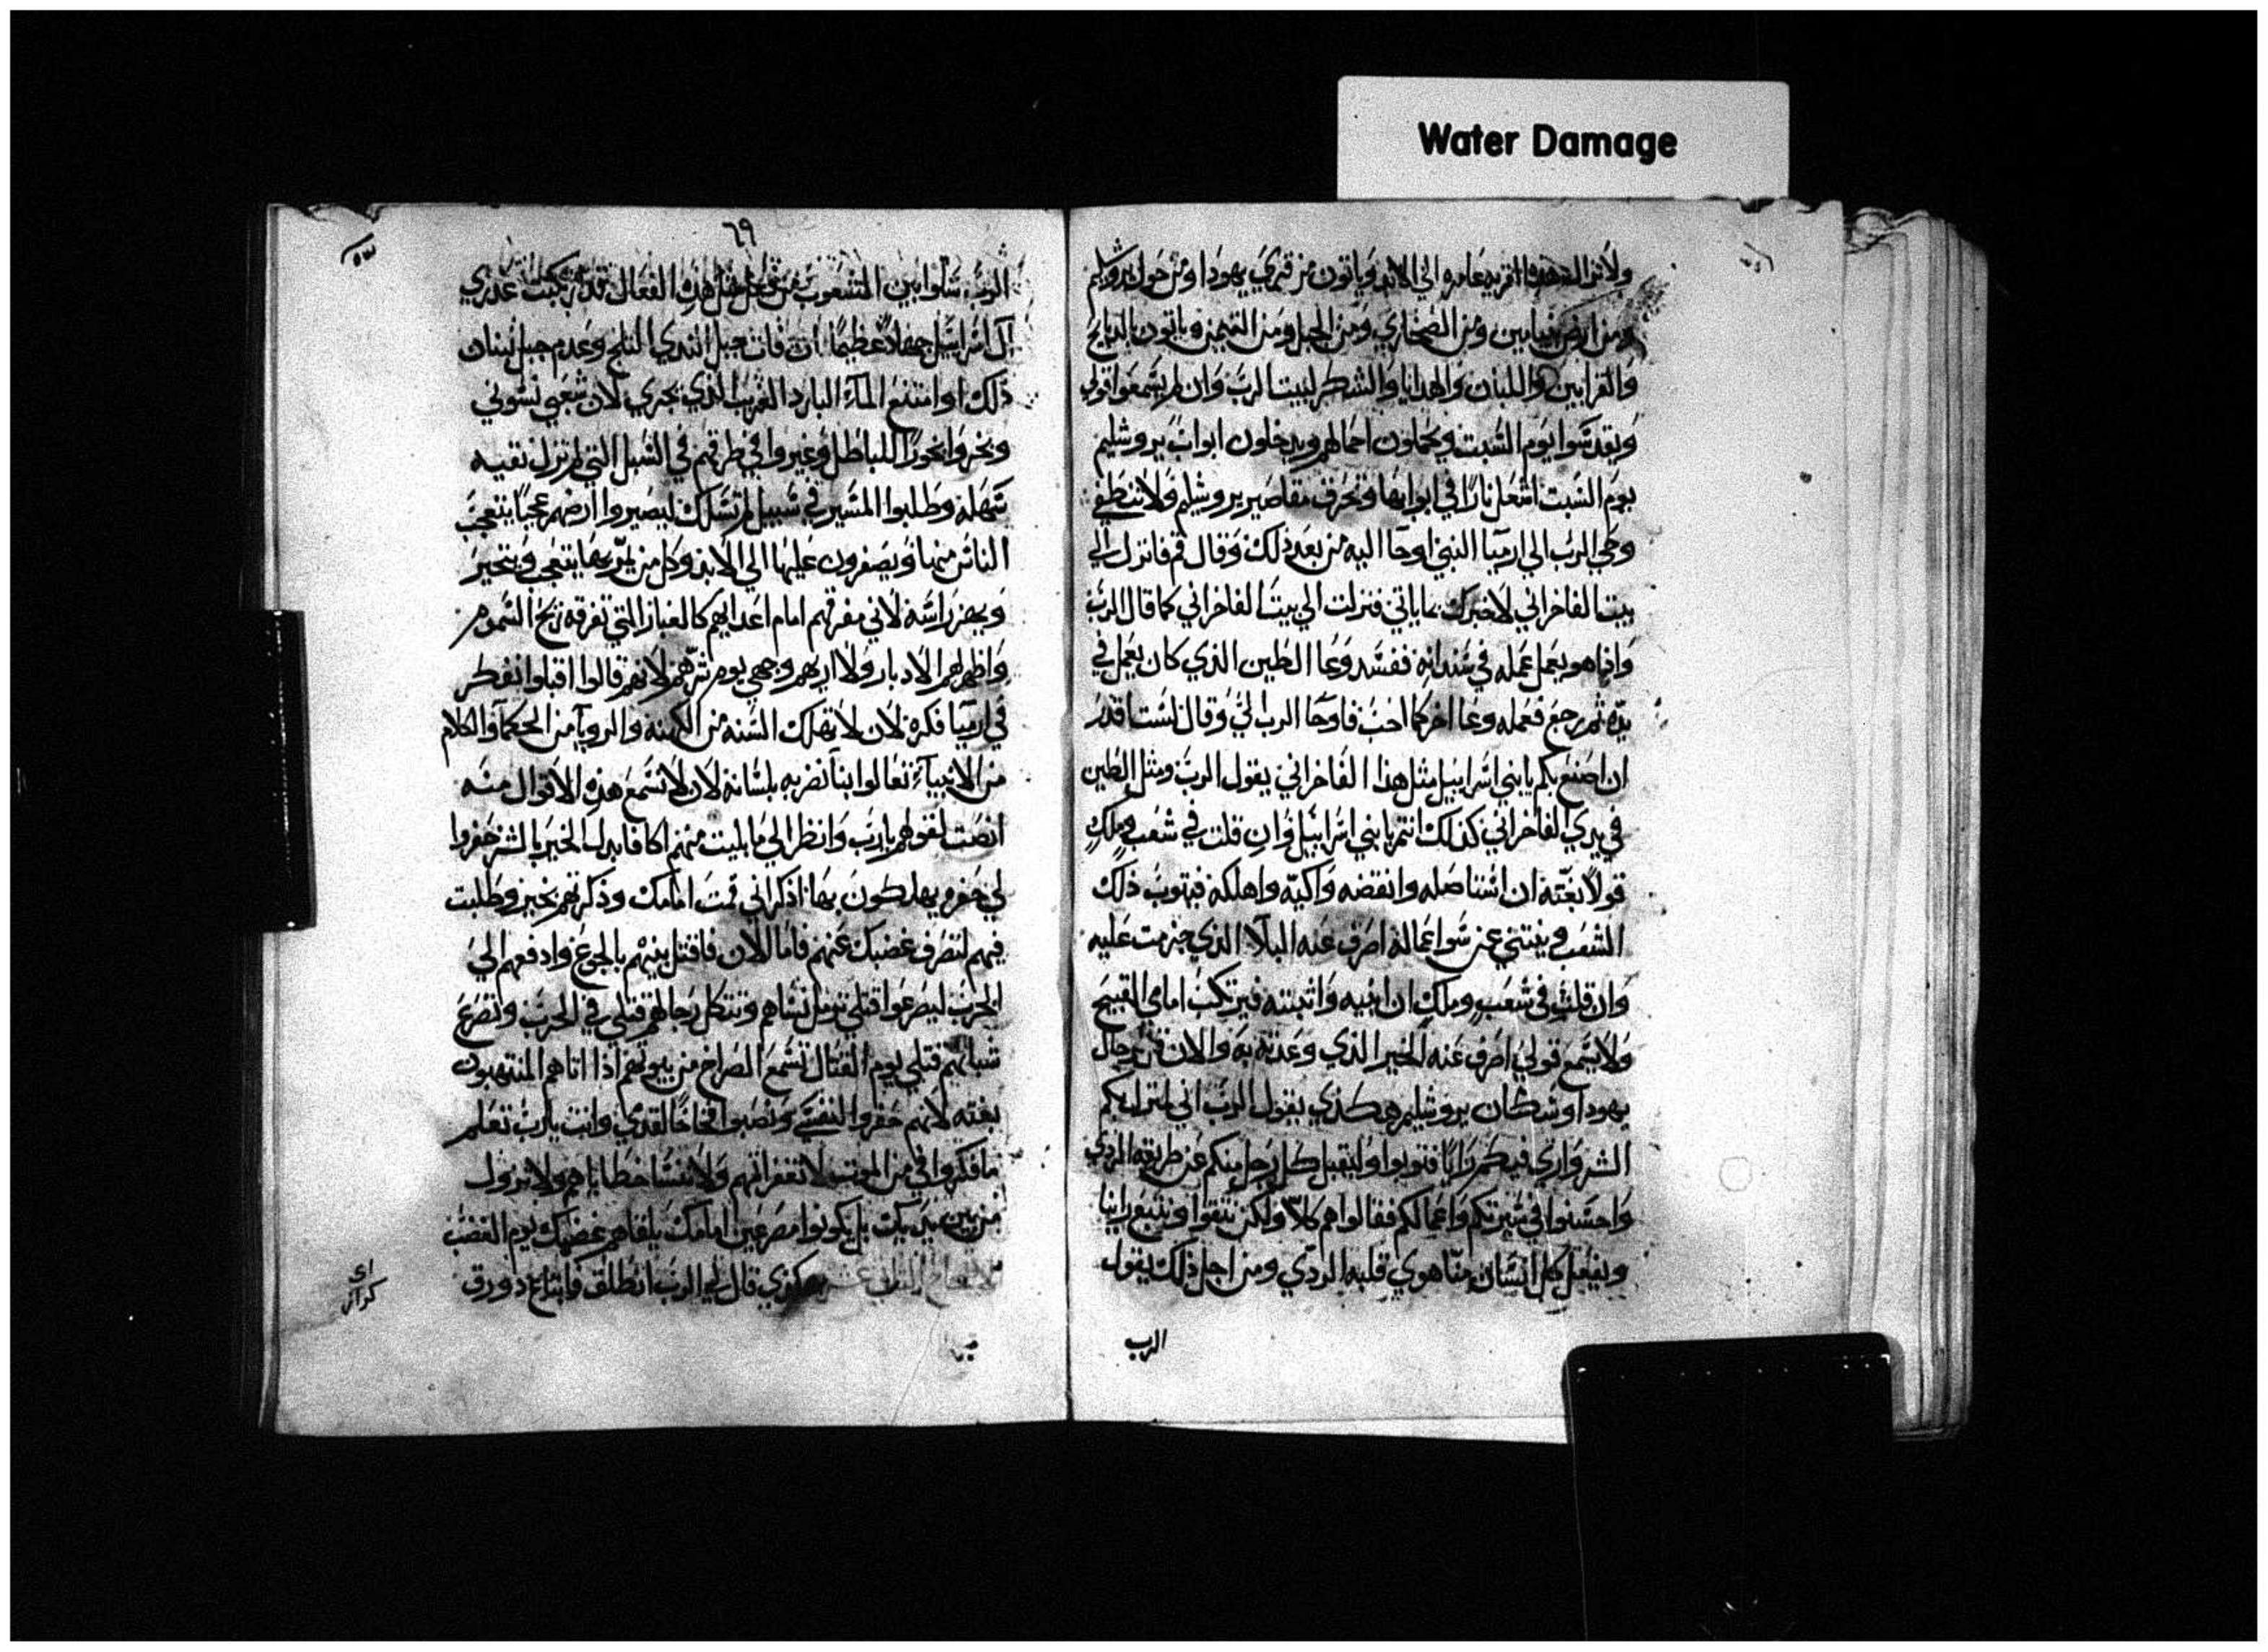 Water Damage
ولا تزال هذه القريه عامره الي الابد وياتون من قري يهودا ومن حول يروشليم
ومن ارض بنيامين ومن الصحاري ومن الجبل ومن التيمن وياتون بالذبايح
والقرابين واللبان والهدايا والشكر لبيت الرب وان لم يسمعوا قولي
ويقدسوا يوم السبت ويحملون احمالهم ويدخلون ابواب يروشليم
يوم السبت اشعل نارا في ابوابها وتحرق مقاصير يروشليم ولا تنطفي
وحي الرب الي ارميا النبي اوحا اليه من بعد ذلك وقال قم فانزل الي
بيت الفاخراني لاخبرك بما ياتي فنزلت الي بيت الفاخراني كما قال الرب
واذا هو يعمل عمله في سندانه ففسد وعا الطين الذي كان يعمل في
يده ثم رجع فعمله وعا اخر كما احب فاوحا الرب الي وقال لست اقدر
ان اصنع بكم يا بني اسراييل مثل هذا الفاخراني يقول الرب ومثل الطين
في يدي الفاخراني كذلك انتم يا بني اسراييل وان قلت في شعب وملك
قولا بغته ان استاصله وانقضه واكبه واهلكه فيتوب ذلك
الشعب وينتني عن سو اعماله اصرف عنه البلا الذي جزمت عليه
وان قلت في شعب وملك ان ابنيه واثبته فيرتكب امامي القبيح
ولا يسمع قولي اصرف عنه الخير الذي وعدته به والان قل لرجال
يهودا وسكان يروشليم هكذي يقول الرب اني منزل بكم
الشر واري فيكم رايا فتوبوا وليقبل كل رجل منكم عن طريقه الردي
واحسنوا في سيرتكم واعمالكم فقالوا هم كلا ولكن نتقوا ونتبع راينا
ويفعل كل انسان منا هوي قلبه الردي ومن اجل ذلك يقول
الرب
٦٩
الرب سلوا بين الشعوب من فعل مثل هذه الفعال قد ارتكبت عذري
ال اسراييل جهاد عظيما ان فات جبل الندي الثلج وعدم جبل لبنان
ذلك او امتنع الماء البارد الغريب الذي يجري لان شعبي نسوني
وبخروا بخورا للباطل وغيروا في طرقهم في السبل التي لم تزل نقيه
سهله وطلبوا المسير في سبيل لم تسلك ليصيروا ارضهم عجبا يتعجب
الناس منها ويصفرون عليها الي الابد وكل من يمر بها يتعجب ويتحير
ويهز راسه لاني مفرقهم امام اعدايهم كالغبار التي تفرقه ريح السموم
واظهر لهم الادبار ولا اريهم وجهي يوم شرهم لانهم قالوا اقبلوا نفكر
في ارميا فكره لان لا تهلك السنه من الكهنه والرويا من الحكما والكلام
من الانبياء تعالوا بنا نضربه بلسانه لان لا نسمع هذه الاقوال منه
انصت لقولهم يا رب وانظر الي ما بليت منهم اكافا بدل الخير بالشر حفروا
لي حفره يهلكون بها اذكر اني قمت امامك وذكرتهم بخير وطلبت
فيهم لتصرف غضبك عنهم فاما الان فاقتل بنيهم بالجوع وادفعهم الي
الحرب ليصرعوا قتلي ترمل نساهم وتثكل رجالهم قتلي في الحرب وتصرع
شبانهم قتلي يوم القتال تسمع الصراخ من بيوتهم اذا اتاهم المنتهبون
بغته لانهم حفروا لنفسي ونصبوا فخاخا لقدمي وانت يا رب تعلم
ما فكروا في من الموت لا تغفر اثمهم ولا تنسا خطاياهم ولا تزول
من بين يديك بل يكونوا مصرعين امامك يلقاهم غضبك يوم الغضب
هكذي قال لي الرب انطلق فابتاع دورق
اي
كراز